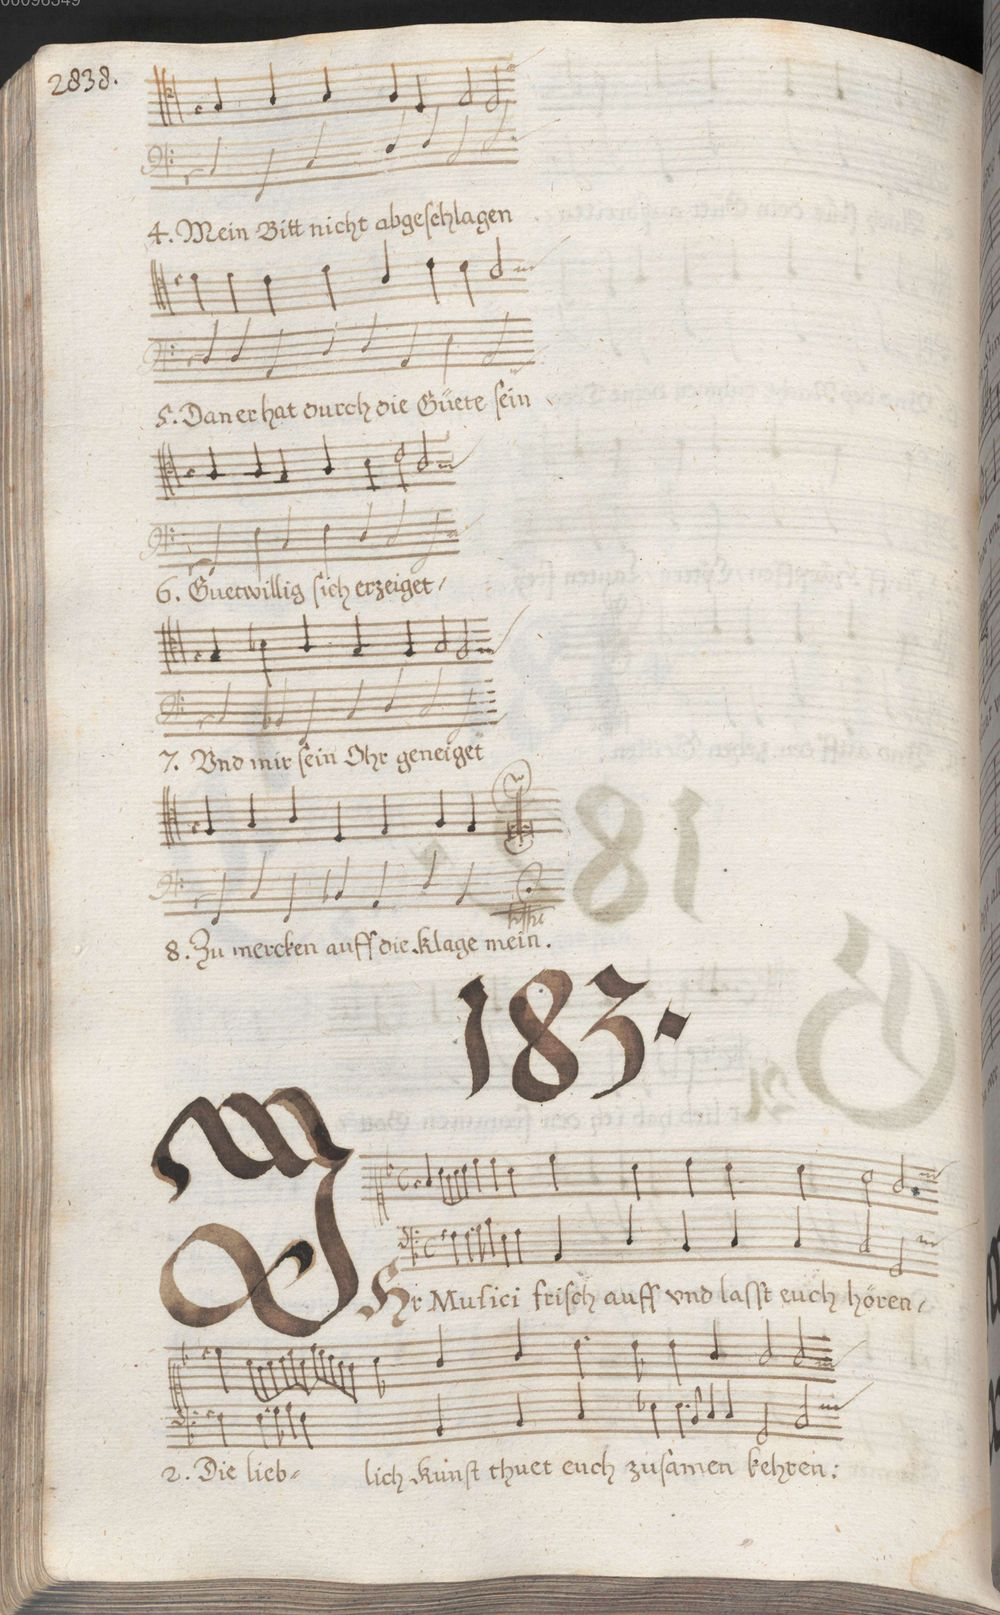 00098349
2838.
4. Mein Bitt nicht abgeschlagen
5. Dan er hat durch die Güete sein
6. Güetwillig sich erzeiget /
7. Vnd mir sein Ohr geneiget
8. Zu mercken auff die klage mein.
183.
IHr Musici frisch auff vnd lasst euch hören /
2. Die lieb- lich kunst thuet euch zusamen kehren: